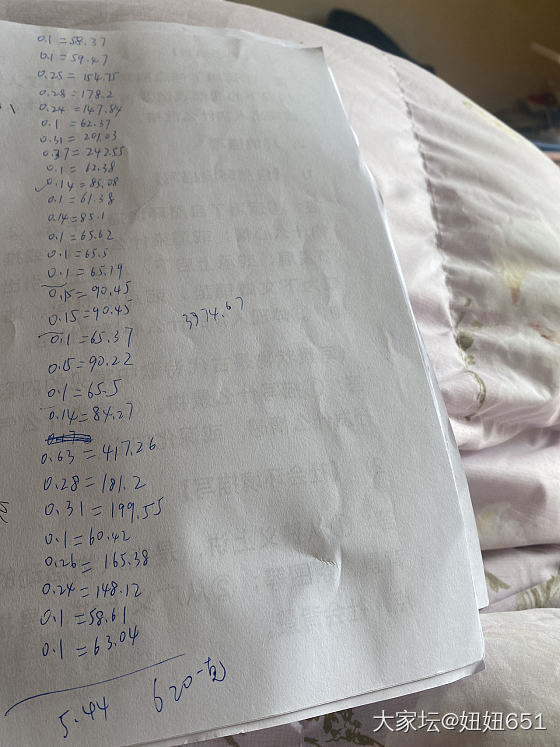 0.1=58.37
0.1=59.47
0.25=154.75
0.28=178.2
0.24=147.84
0.1=62.37
0.31=201.03
0.37=242.55
0.1=62.38
0.14=85.08
0.1=61.38
0.14=85.1
0.1=65.62
0.1=65.5
0.1=65.79
0.15=90.45
0.15=90.45
3974.67
0.1=65.37
0.15=90.22
0.1=65.5
0.14=84.27
0.63=417.26
0.28=181.2
0.31=199.55
0.1=60.42
0.26=165.38
0.24=148.12
0.1=58.61
0.1=63.04
5.44 620一
大家坛@妞妞651